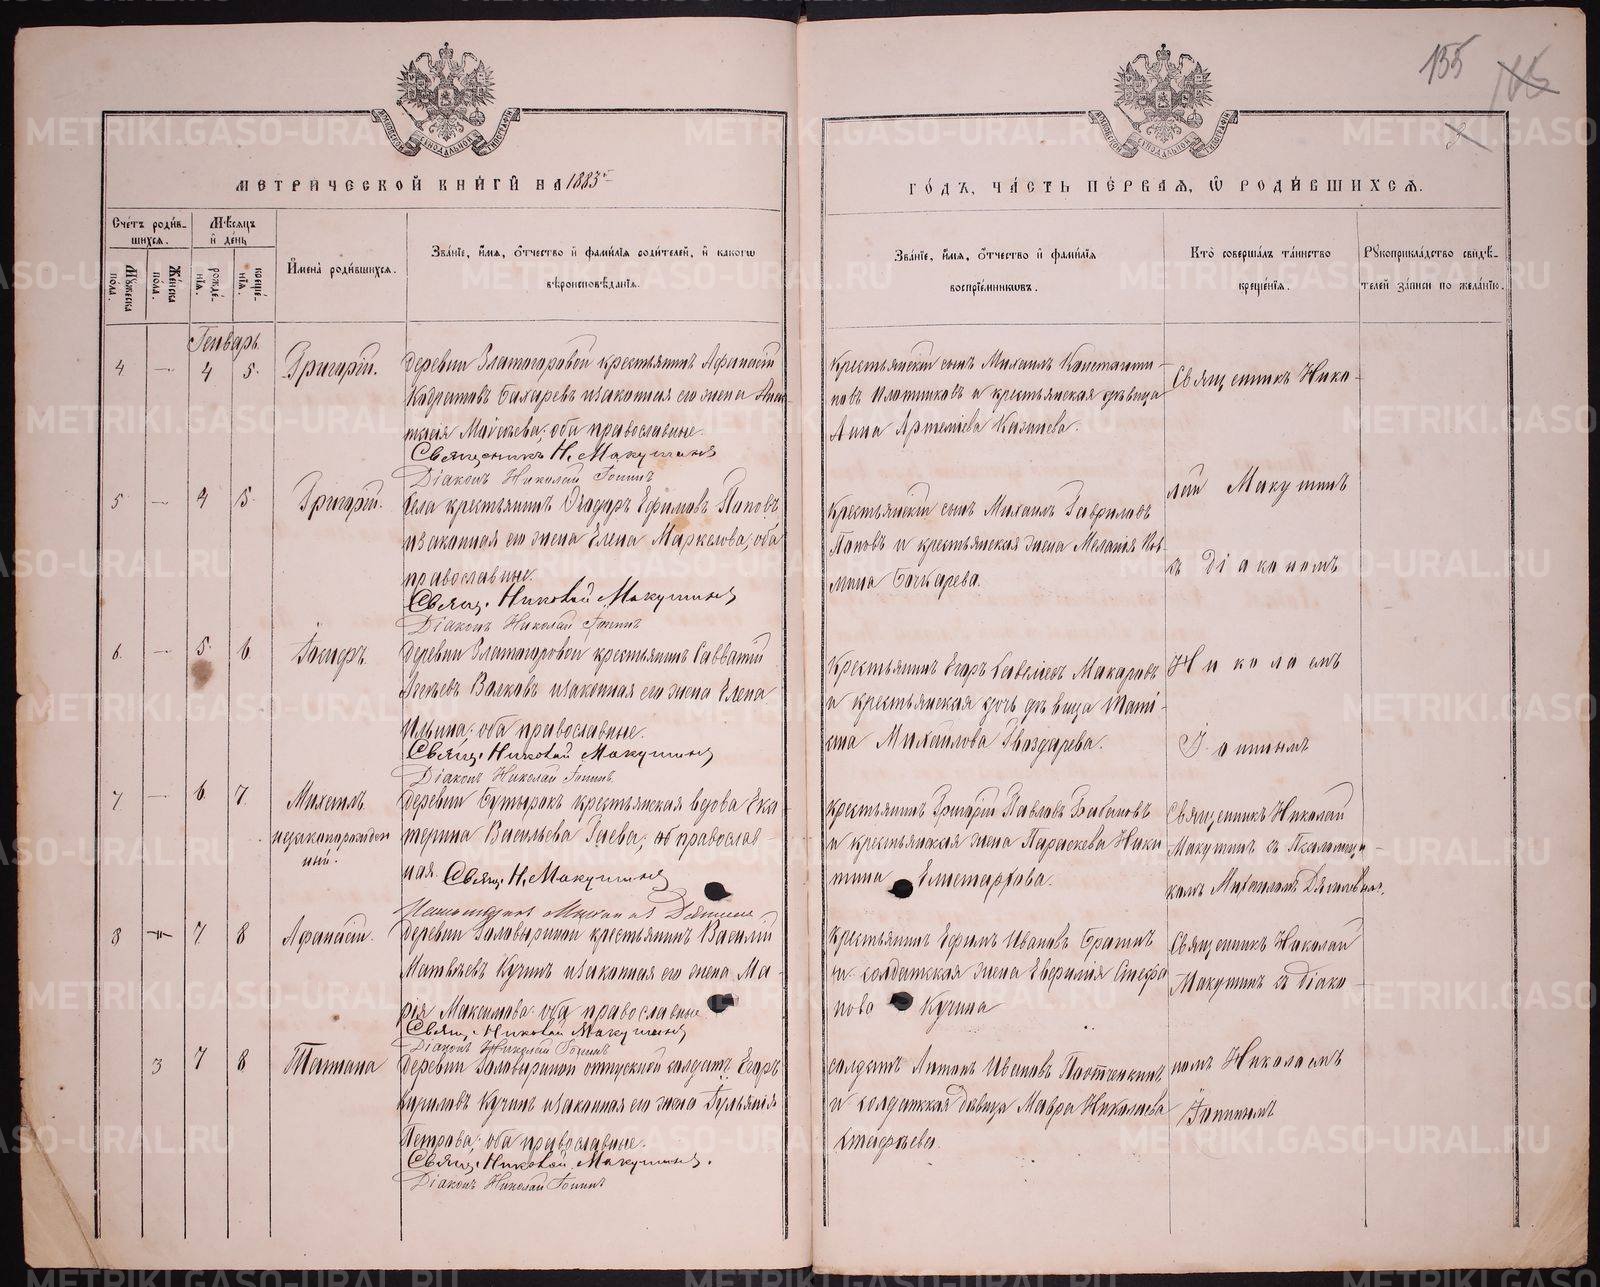 155
МЕТРИЧЕСКОЙ КНИГИ НА 1883 г.
ГОДЪ, ЧАСТЬ ПЕРВАЯ, Ѡ РОДИВШИХСЯ.
Счетъ родив-
шихся.
Мѣсяцъ
и день
Мужеска
пола.
Женска
пола.
рожде-
нія.
креще-
нія.
Имена родившихся.
Званіе, имя, отчество и фамилія родителей, и какогѡ
вѣроисповѣданія.
Званіе, имя, отчество и фамилія
воспріемниковъ.
Кто совершалъ таинство
крещенія.
Рукоприкладство свидѣ-
телей записи по желанію.
Генварь.
4 — 4 5. Григорій.
деревни Златогоровой крестьянинъ Афанасій
Бахаревъ изаконная его жена
Моисѣева, оба православные.
Священникъ Н. Макушинъ
Діаконъ Николай
Крестьянскій сынъ Михаилъ Константи-
новъ Плотниковъ и крестьянская дѣвица
Анна Артемьева Казанцева.
Священникъ Нико-
5 — 4 5. Григорій.
Села крестьянинъ Ѳеодоръ Ефимовъ Поповъ
изаконная его жена Елена Маркелова, оба
православные.
Свящ. Николай Макушинъ
Діаконъ Николай
Крестьянскій сынъ Михаилъ Гавриловъ
Поповъ и крестьянская жена Меланія
Бочкарева.
лай Макушинъ
съ діакономъ
6. — 5. 6. Іосифъ.
деревни Златогоровой крестьянинъ Савватій
Волковъ изаконная его жена Елена
Ильина, оба православные.
Свящ. Николай Макушинъ
Діаконъ Николай
Крестьянинъ Егоръ Савеліевъ Макаровъ
и крестьянская дочь дѣвица Тати-
ана Михайлова Гвоздарева.
Николаемъ
7 — 6 7. Михаилъ
незаконнорожден
ный.
деревни Бутырокъ крестьянская вдова Ека-
терина Васильева Гаева, православ-
ная. Свящ. Н. Макушинъ
Крестьянинъ Григорій Павловъ Бабановъ
и крестьянская жена Параскева Ники-
тина Елистархова.
Священникъ Николай
Макушинъ съ Псаломщи-
комъ Михаиломъ
8 7 8 Афанасій.
деревни Головыриной крестьянинъ Василій
Матвѣевъ Кучинъ изаконная его жена Ма-
рія Максимова, оба православные
Свящ. Николай Макушинъ
Діаконъ Николай
Крестьянинъ Ефимъ Ивановъ Братинъ
и солдатская жена Евфимія Стефа
нова Кучина
Священникъ Николай
Макушинъ съ діако-
3 7 8 Татіана
деревни Головыриной отпускной солдатъ Егоръ
Кириловъ Кучинъ изаконная его жена Іульянія
Петрова, оба православные.
Свящ. Николай Макушинъ.
Діаконъ Николай
солдатъ Антонъ Ивановъ
и солдатская дѣвица Мавра Николаева
Евстафьева.
номъ Николаемъ